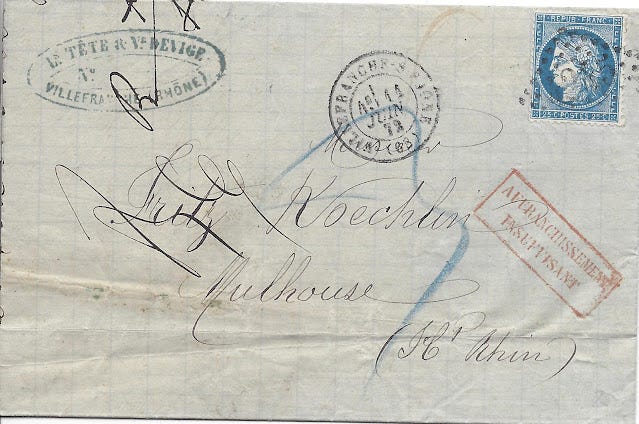 LE TÊTE & Vor DEVIGE
No
VILLEFRANCHE (RHÔNE)
VILLEFRANCHE-S-SAÔNE
JUIN
(68)
REPUB. FRANC.
25 C. POSTES 25 C.
Monsieur
Fritz Koechlin
Mulhouse
(Ht Rhin)
AFFRANCHISSEMENT
INSUFFISANT